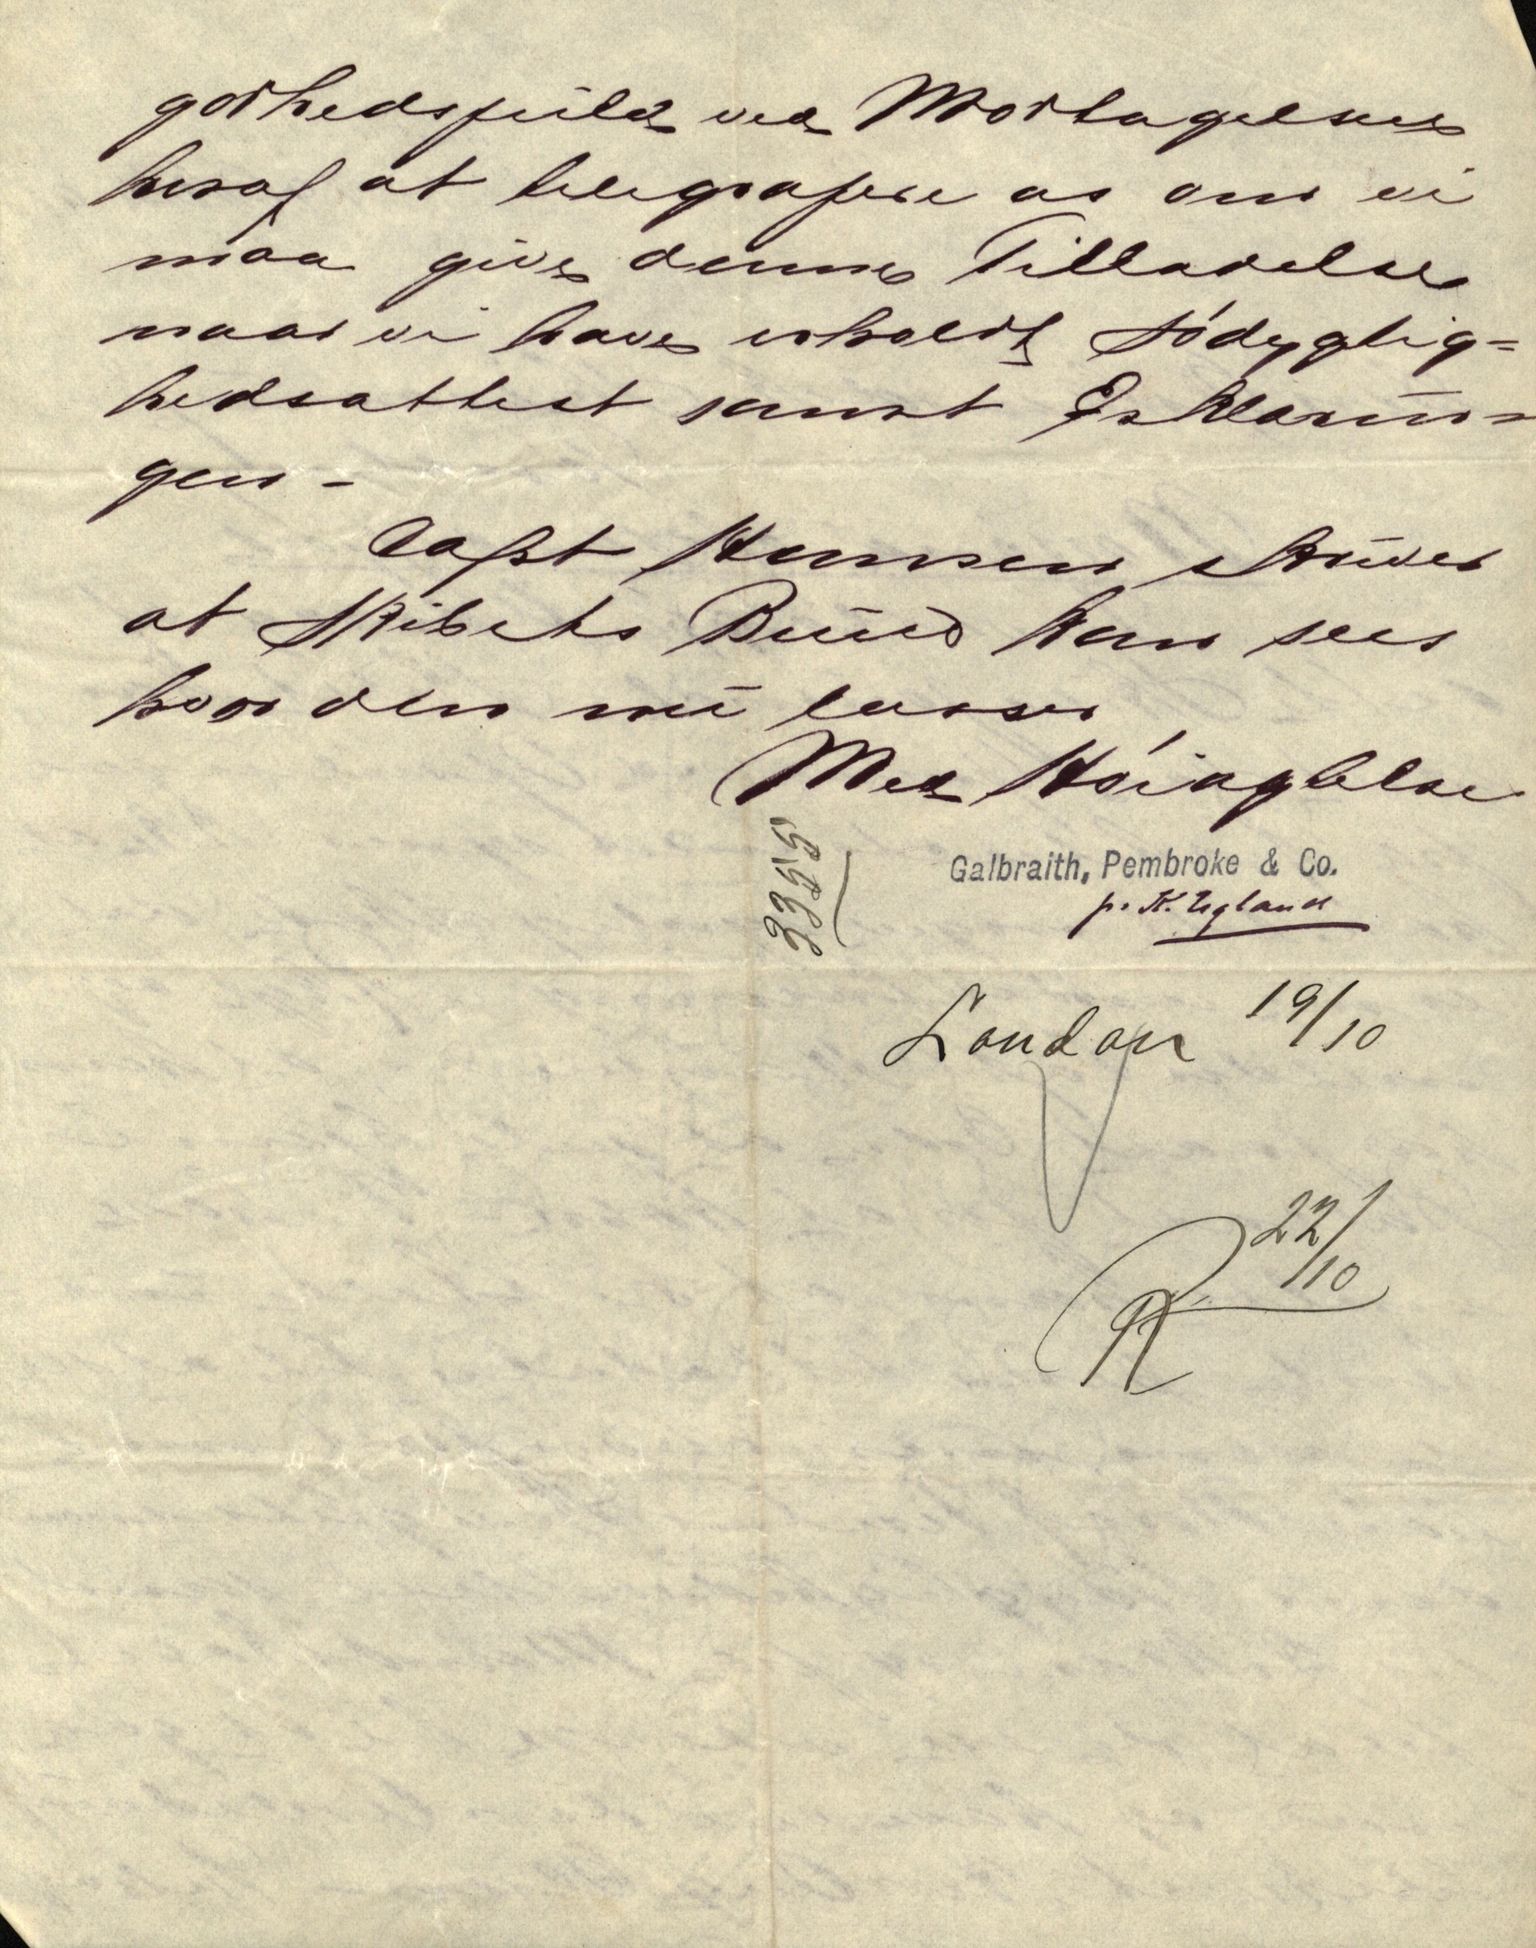 godhedsfuld ved Modtagelsen
heraf at telegrafere os om vi
maa give denne Tilladelse
naar vi have erholdt Sødyglig=
hedsattest samt Erklærin=
gen -
Capt Hansen skriver
at Skibets Bund kan sees
hvor den nu ligger
Med Høiagtelse
Galbraith, Pembroke & Co.
p. K. Ugland
3355
London 19/10
22/10
R